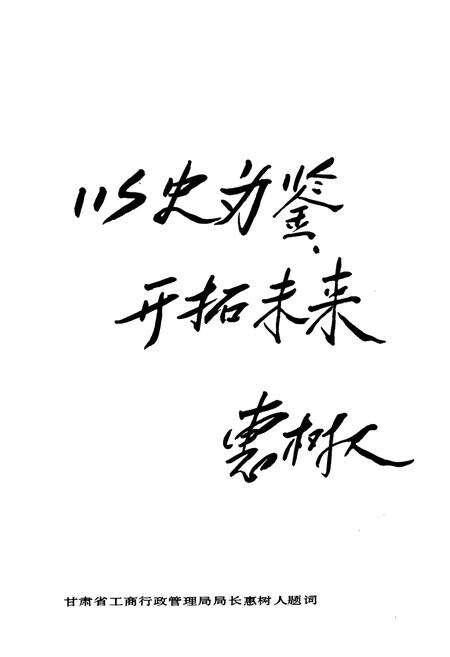 以史为鉴、
开拓未来
惠树人
甘肃省工商行政管理局局长惠树人题词